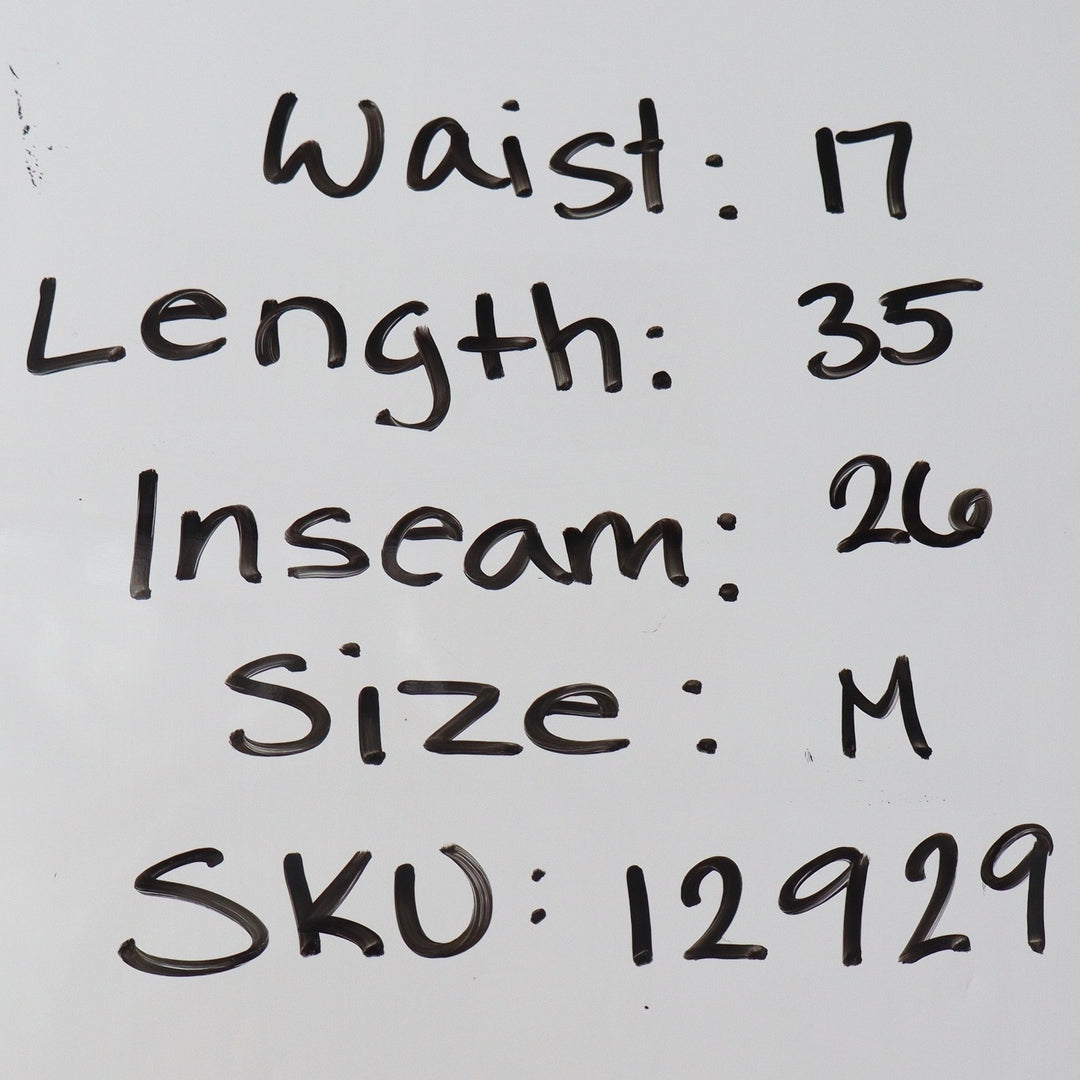 Waist: 17
Length: 35
Inseam: 26
Size: M
SKU: 12929